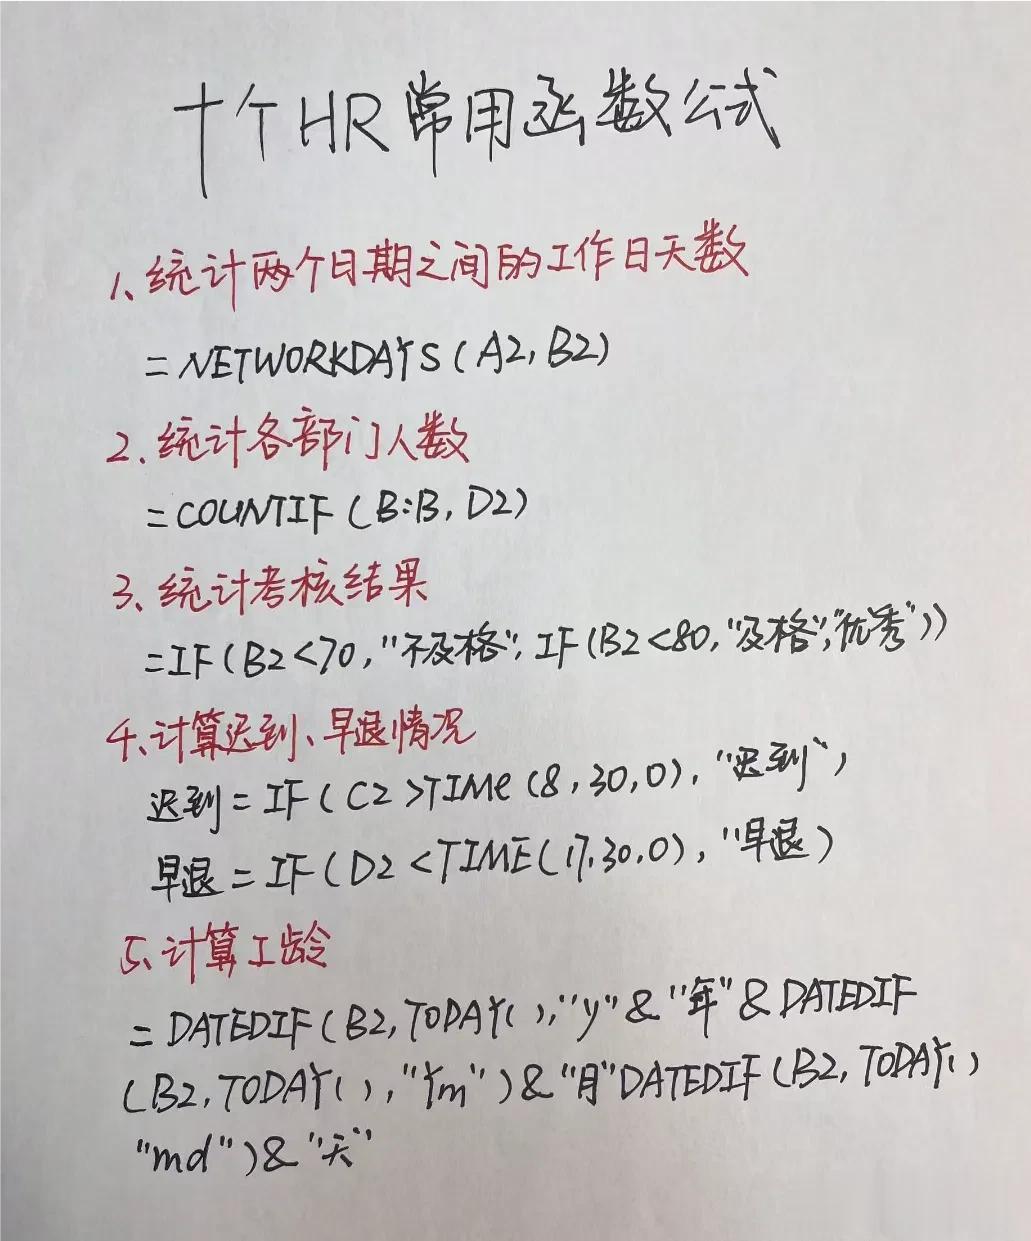 十个HR常用函数公式
1、统计两个日期之间的工作日天数
=NETWORKDAYS(A2,B2)
2.统计各部门人数
=COUNTIF(B:B,D2)
3、统计考核结果
=IF(B2<70,"不及格",IF(B2<80,"及格","优秀"))
4、计算迟到、早退情况
迟到=IF(C2>TIMe(8,30,0),"迟到",)
早退=IF(D2<TIME(17,30,0),"早退)
5、计算工龄
=DATEDIF(B2,TODAY(),"y"&"年"&DATEDIF
(B2,TODAY(),"Ym")&"月"DATEDIF(B2,TODAY()
"md")&"天"